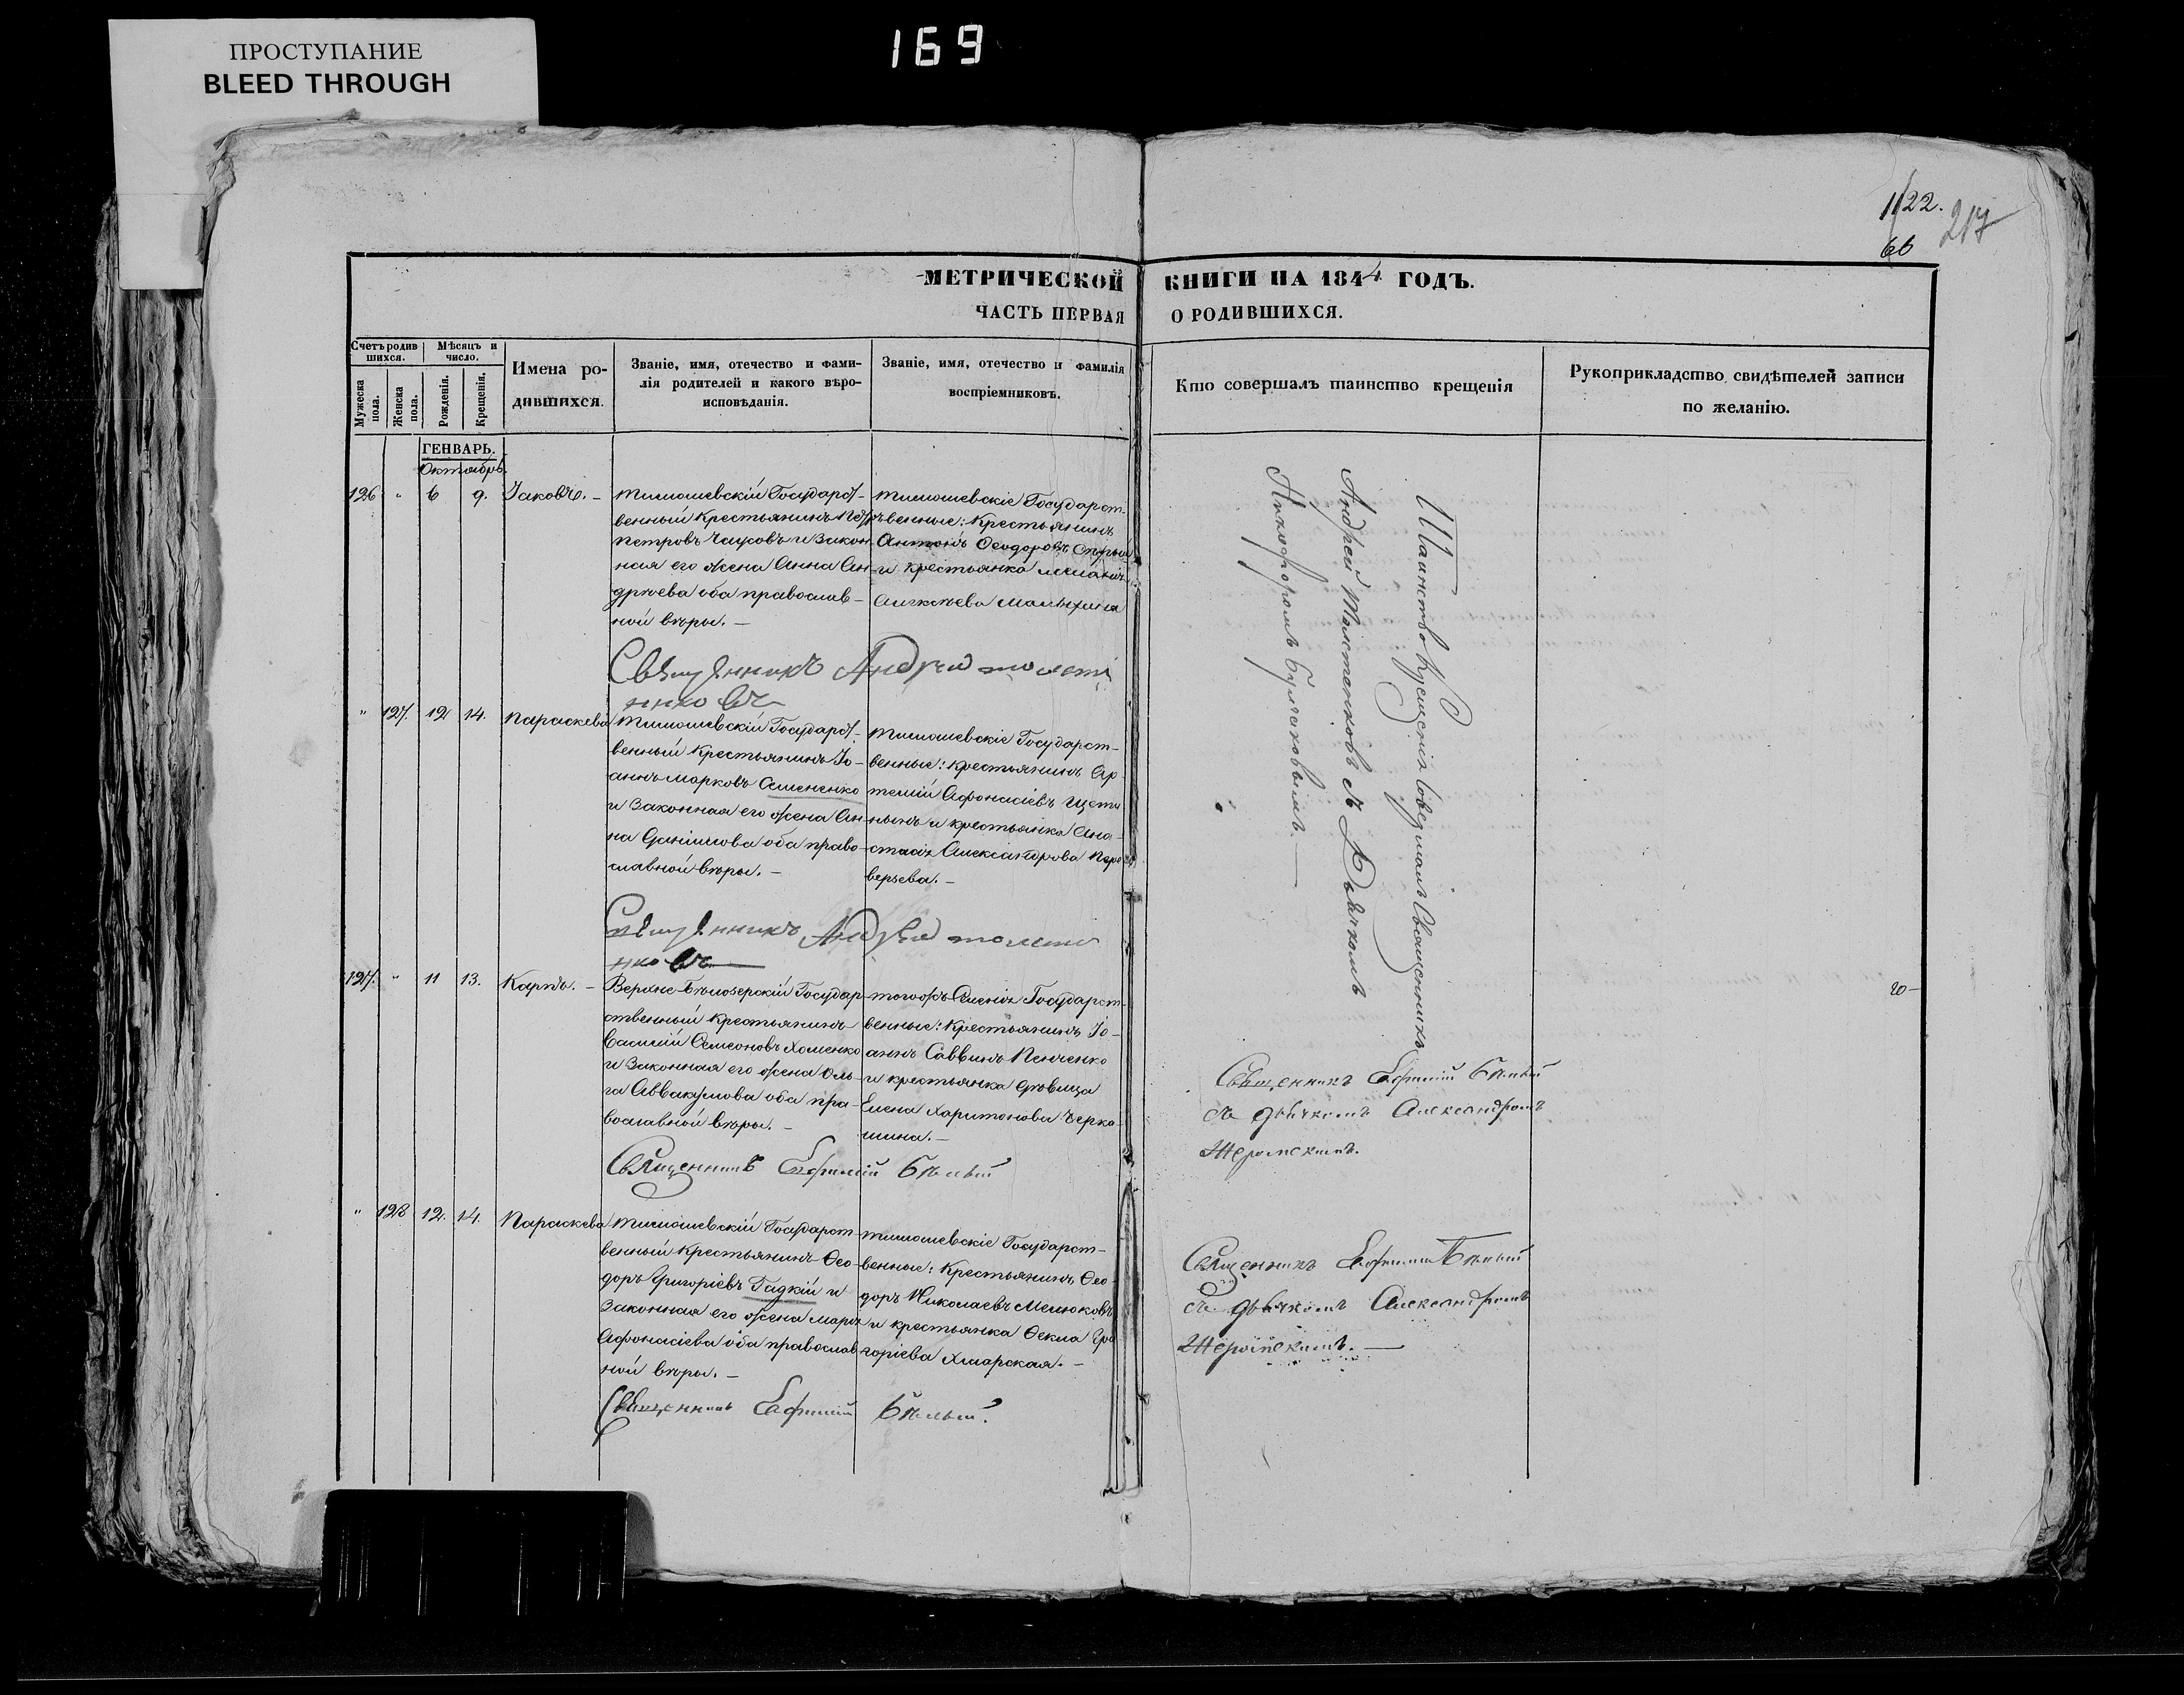 ПРОСТУПАНИЕ
BLEED THROUGH
169
1122.
217
66
МЕТРИЧЕСКОЙ КНИГИ НА 1844 ГОДЪ.
ЧАСТЬ ПЕРВАЯ О РОДИВШИХСЯ.
Счетъ родив
шихся.
Мѣсяцъ и
число.
Мужеска пола.
Женска пола.
Рожденія.
Крещенія.
Имена ро-
дившихся.
Званіе, имя, отечество и фами-
лія родителей и какого вѣро-
исповѣданія.
Званіе, имя, отечество и фамилія
воспріемниковъ.
Кто совершалъ таинство крещенія
Рукоприкладство свидѣтелей записи
по желанію.
ГЕНВАРЬ.
Октябрь.
126 " 6 9. Іаковъ. –
Тимошевскій Государст-
венный крестьянинъ
Петровъ и закон-
ная его жена Анна Ан-
дрѣева оба православ-
ной вѣры. –
Тимошевскіе Государст-
венные: крестьянинъ
Антонъ Ѳеодоровъ
и крестьянка
Алексѣева
Священникъ Андрей Толсти
нковъ
Таинство Крещенія совершалъ Священникъ
Андрей Толстенковъ съ Дьячкомъ
Никифоромъ Булгаковымъ. –
" 127. 12 14. Параскева
Тимошевскій Государст-
венный крестьянинъ Іо-
аннъ Марковъ Семененко
и законная его жена Ан-
на Даніилова оба право-
славной вѣры. –
Тимошевскіе Государст-
венные: крестьянинъ Ар-
темій Афонасіевъ Щети
нинъ и крестьянка Ана-
стасія Александрова
верзева. –
Священникъ Андрей Толсти
нковъ
127. " 11 13. Карпъ. –
Верхне-Бѣлозерскій Государ-
ственный крестьянинъ
Василій Семеоновъ Хоменко
и законная его жена Оль-
га Аввакумова оба пра-
вославной вѣры. –
тогожъ Селенія Государст-
венные: крестьянинъ Іо-
аннъ Саввинъ Пенченко
и крестьянка дѣвица
Елена Харитонова Черка
шина. –
Священникъ Евфимій Бѣлый
Священникъ Евфимій Бѣлый
съ дьячкомъ Александромъ
Жеромскимъ.
20 –
" 128 12. 14. Параскева
Тимошевскій Государст-
венный крестьянинъ Ѳео-
доръ Григоріевъ Гадкій и
законная его жена Марѳа
Афонасіева оба православ-
ной вѣры. –
Тимошевскіе Государст-
венные: крестьянинъ Ѳео
доръ Николаевъ Мелюковъ
и крестьянка Ѳекла Гри
горіева Хмарская. –
Священникъ Евфимій Бѣлый.
Священникъ Евфимій Бѣлый
съ дьячкомъ Александромъ
Жеромскимъ. –